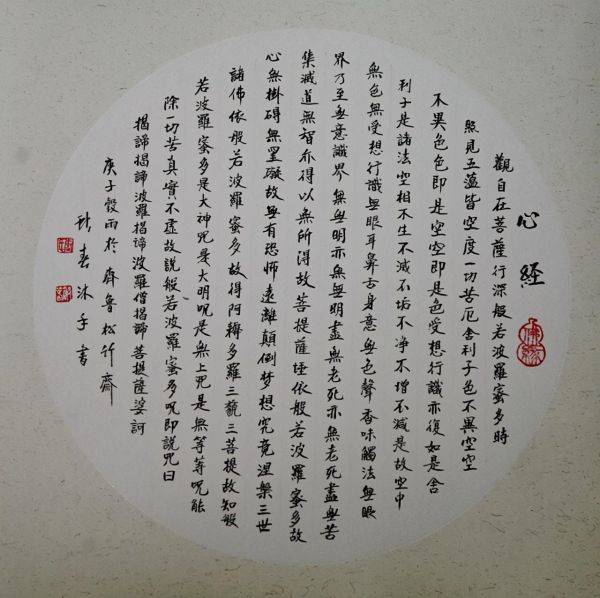 心 經
觀自在菩薩行深般若波羅蜜多時
照見五蘊皆空度一切苦厄舍利子色不異空空
不異色色即是空空即是色受想行識亦復如是舍
利子是諸法空相不生不滅不垢不净不增不減是故空中
無色無受想行識無眼耳鼻舌身意無色聲香味觸法無眼
界乃至無意識界無無明亦無無明盡無老死亦無老死盡無苦
集滅道無智亦得以無所得故菩提薩埵依般若波羅蜜多故
心無掛碍無罣礙故無有恐怖遠離顛倒梦想究竟涅槃三世
諸佛依般若波羅蜜多故得阿耨多羅三藐三菩提故知般
若波羅蜜多是大神咒是大明咒是無上咒是無等等咒能
除一切苦真實不虚故說般若波羅蜜多咒即說咒曰
揭諦揭諦波羅揭諦波羅僧揭諦菩提薩婆訶
庚子穀雨於齊魯松竹齋
春沐手書